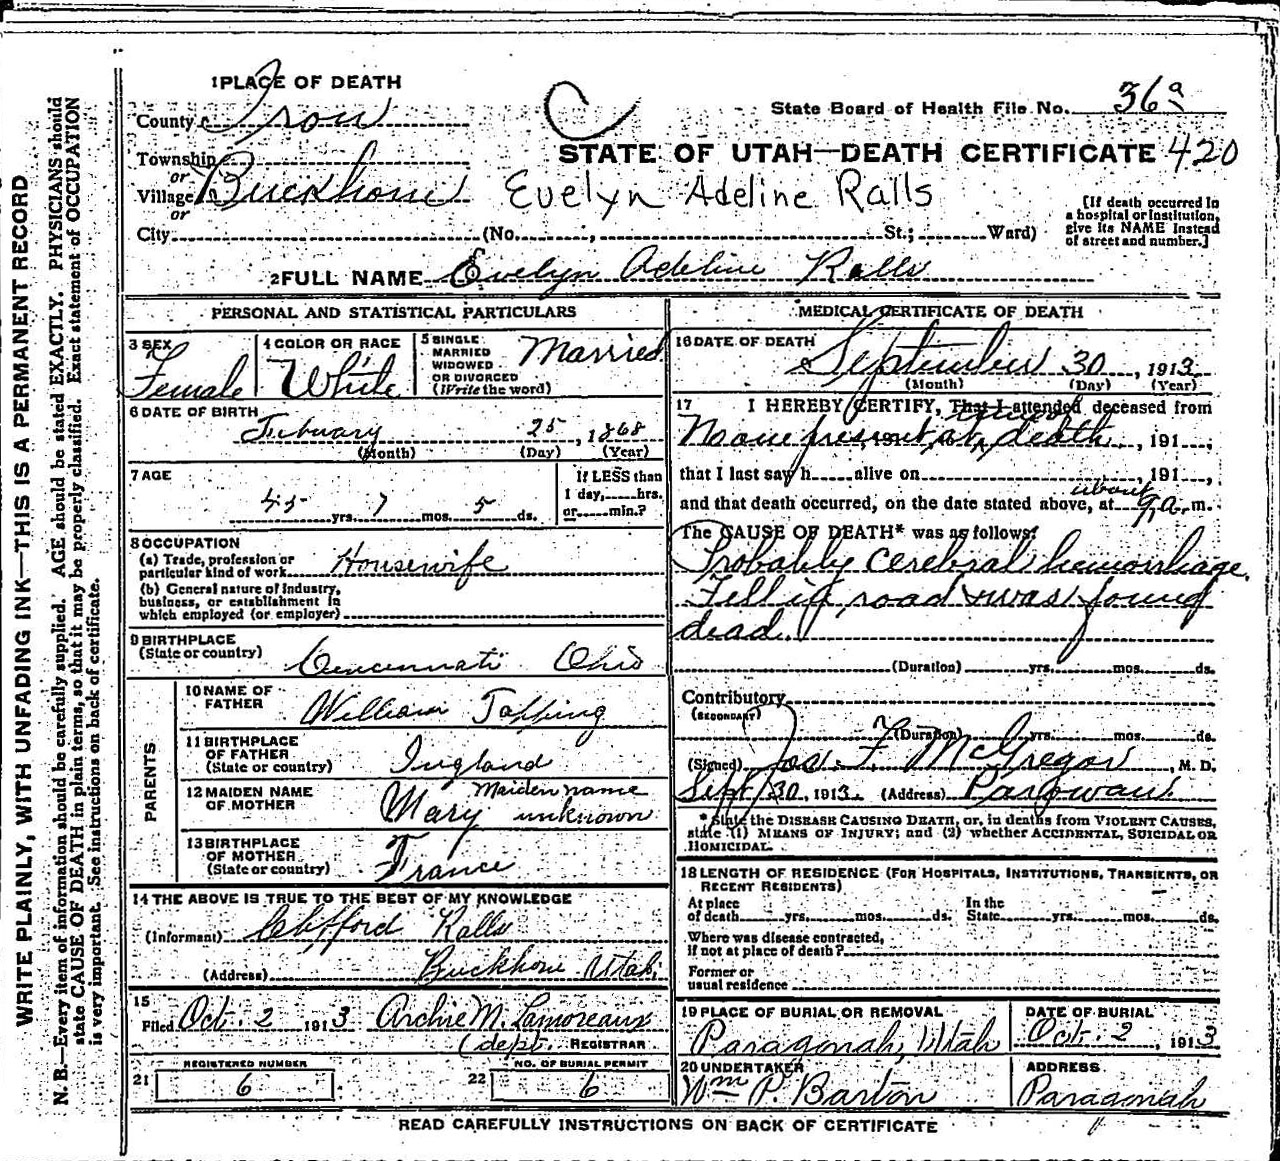 WRITE PLAINLY, WITH UNFADING INK—THIS IS A PERMANENT RECORD
N. B.—Every item of information should be carefully supplied. AGE should be stated EXACTLY. PHYSICIANS should
state CAUSE OF DEATH in plain terms, so that it may be properly classified. Exact statement of OCCUPATION
is very important. See instructions on back of certificate.
1 PLACE OF DEATH
County Iron
Township
or
Village Buckhorn
or
City (No. , St.; Ward)
C
State Board of Health File No. 36a
STATE OF UTAH—DEATH CERTIFICATE 420
Evelyn Adeline Ralls
[If death occurred in
a hospital or institution,
give its NAME instead
of street and number.]
2 FULL NAME Evelyn Adeline Ralls
PERSONAL AND STATISTICAL PARTICULARS
3 SEX
Female
4 COLOR OR RACE
White
5 SINGLE
MARRIED
WIDOWED
OR DIVORCED
(Write the word)
Married
6 DATE OF BIRTH
Febuary 25, 1868
(Month) (Day) (Year)
7 AGE
45 yrs. 7 mos. 5 ds.
If LESS than
1 day, hrs.
or min.?
8 OCCUPATION
(a) Trade, profession or
particular kind of work Housewife
(b) General nature of industry,
business, or establishment in
which employed (or employer)
9 BIRTHPLACE
(State or country) Cincennati Ohio
PARENTS
10 NAME OF
FATHER William Topping
11 BIRTHPLACE
OF FATHER
(State or country) Ingland
12 MAIDEN NAME
OF MOTHER Mary Maiden name unknown
13 BIRTHPLACE
OF MOTHER
(State or country) France
14 THE ABOVE IS TRUE TO THE BEST OF MY KNOWLEDGE
(Informant) Clifford Ralls
(Address) Buckhorn Utah
15
Filed Oct. 2 1913 Archie M. Lamoreaux
(dept. REGISTRAR
REGISTERED NUMBER
21 6
NO. OF BURIAL PERMIT
22 6
MEDICAL CERTIFICATE OF DEATH
16 DATE OF DEATH
September 30, 1913
(Month) (Day) (Year)
17 I HEREBY CERTIFY, That I attended deceased from
No one present at death, 191 ,
that I last saw h alive on , 191 ,
and that death occurred, on the date stated above, at about 9 a. m.
The CAUSE OF DEATH* was as follows:
Probably cerebral hemorrhage.
Fell in road & was found
dead.
(Duration) yrs. mos. ds.
Contributory
(SECONDARY)
(Duration) yrs. mos. ds.
(Signed) Jos. F. McGregor, M. D.
Sept 30, 1913. (Address) Parowan
* State the DISEASE CAUSING DEATH, or, in deaths from VIOLENT CAUSES,
state (1) MEANS OF INJURY; and (2) whether ACCIDENTAL, SUICIDAL OR
HOMICIDAL.
18 LENGTH OF RESIDENCE (FOR HOSPITALS, INSTITUTIONS, TRANSIENTS, OR
RECENT RESIDENTS)
At place
of death yrs. mos. ds.
In the
State yrs. mos. ds.
Where was disease contracted,
if not at place of death?
Former or
usual residence
19 PLACE OF BURIAL OR REMOVAL
Paragonah, Utah
DATE OF BURIAL
Oct. 2, 1913
20 UNDERTAKER
Wm P. Barton
ADDRESS
Paragonah
READ CAREFULLY INSTRUCTIONS ON BACK OF CERTIFICATE